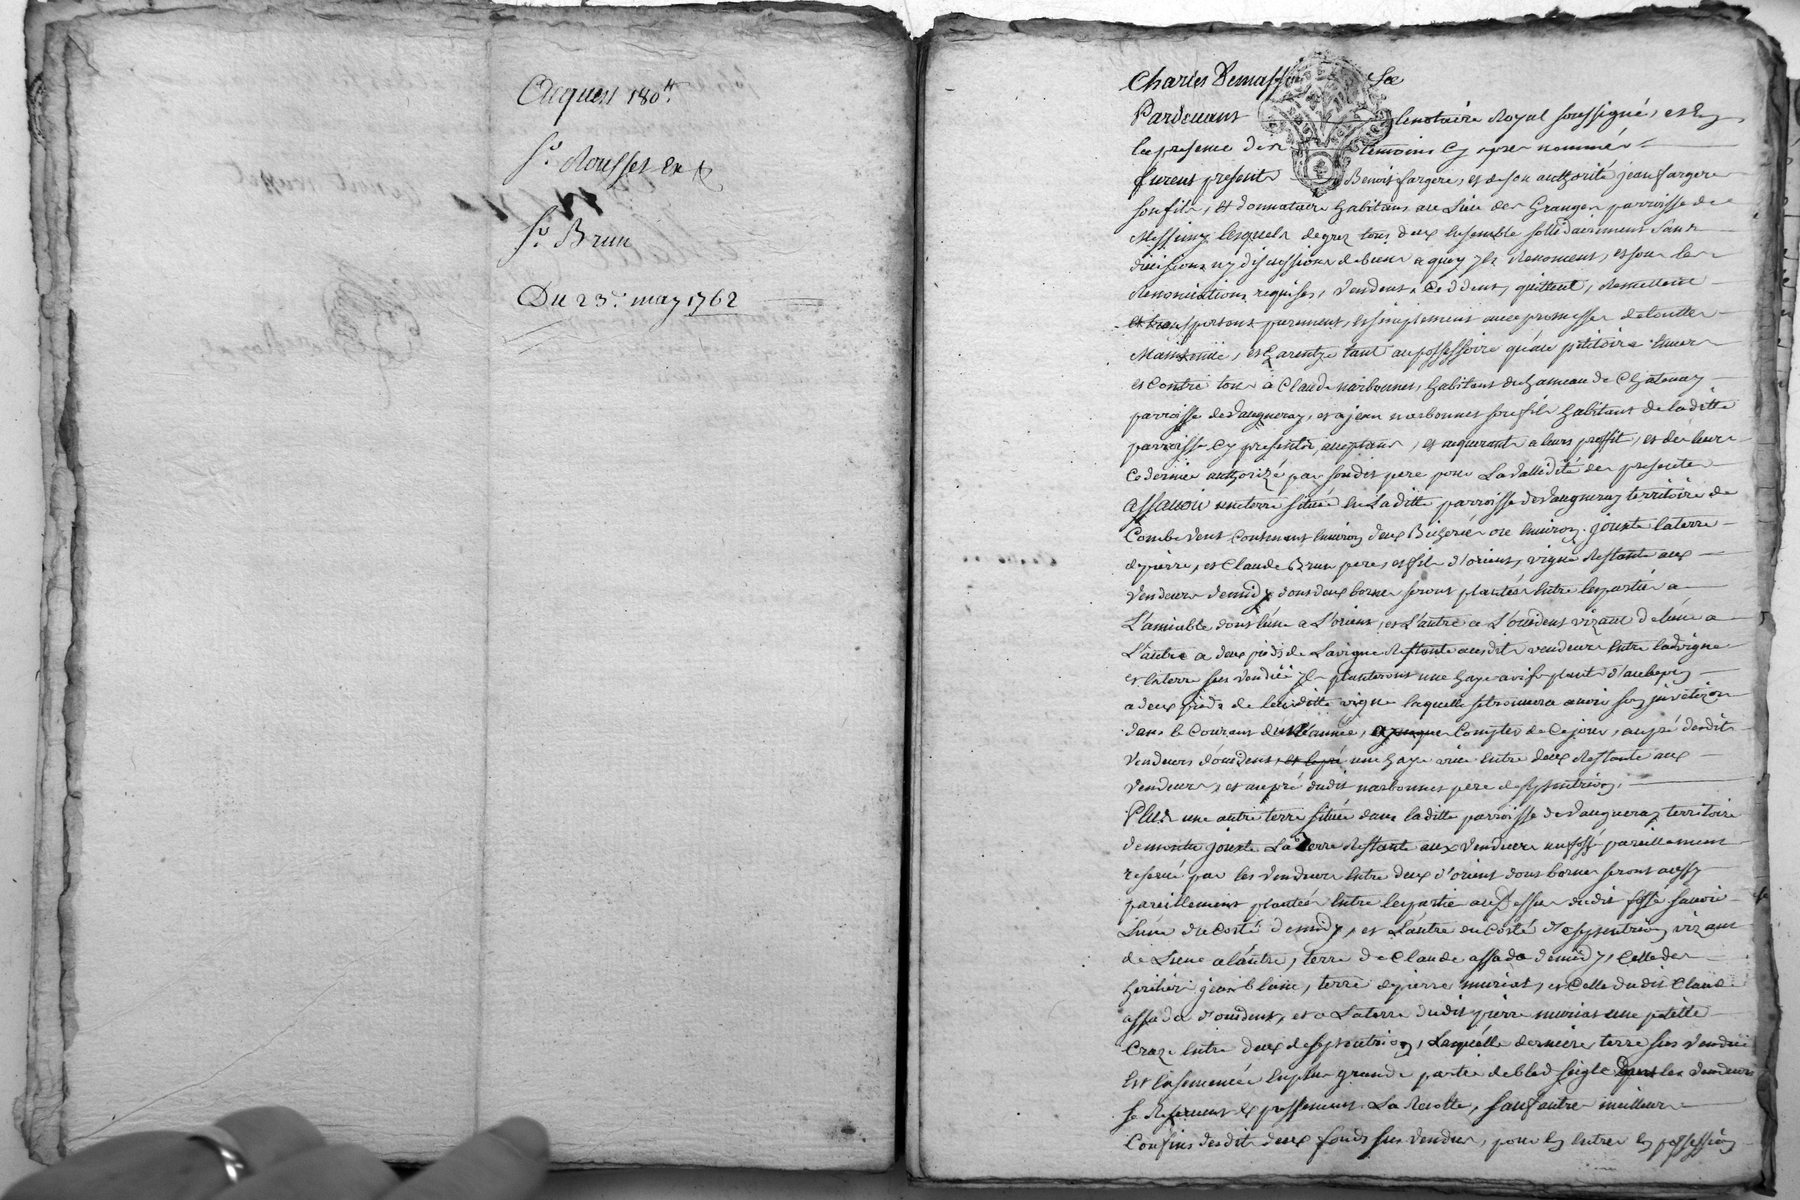 Acquest 180lt
Sr. Rousset et
Sr. Brun
Du 23e. may 1762
Charles Demasso
Pardevant le notaire Royal soussigné, et En
la presence des temoins Cy apres nommés
furent presents Benoit fargere, et de son authorité jean fargere
son fils, et donnataire habitans au Lieu des Granges parroisse de
Messimy lesquels de grez tous deux Ensemble sollidairement sans
division ny discussion de biens a quoy ils Renoncent, et sous les
Renonciations requises, Vendent, Ceddent, quittent, Remettent
et transportent purement, et simplement avec promesse de toutte
Maintenüe, et Garentye tant au possessoire qu'au petitoire Envers
et Contre tous à Claude narbonnet, habitant du hameau de Chatenay
parroisse de Vaugneray, et a jean narbonnet son fils habitant de laditte
parroisse Cy presents, acceptans, et requerants a leurs proffit, et des leurs
Ce dernier authorizé par sondit pere pour La validité des presentes
assavoir une terre située En Laditte parroisse de Vaugneray territoire de
Combe Vent Contenant Environ deux Bicherées ou Environ, jouxte la terre
de pierre, et Claude Brun pere, et fils d'orient, vigne Restante aux
Vendeurs de midy dont deux bornes seront plantées Entre les parties a
L'amiable dont l'une a L'orient, et L'autre a L'occident vizant de l'une a
L'autre a deux pieds de La vigne Restante ausdits vendeurs Entre lad vigne
et la terre sus Vendüe ils planteront une haye avif plant d'aubepin
a deux pieds de laditte vigne laquelle se trouvera avoir son
dans le Courant de l'année, a Compter de Ce jour, au pré desdits
Vendeurs d'occident, et le pré une haye vive Entre deux Restante aux
Vendeurs, et au pré dudit narbonnet pere de septentrion,
Plus une autre terre située dans laditte parroisse de Vaugneray territoire
de jouxte La Terre Restante aux Vendeurs un fossé pareillement
reservé par les Vendeurs Entre deux d'orient dont bornes seront aussy
pareillement plantées Entre les parties au Dessus dudit fossé savoir
L'une du Costé de midy, et L'autre du Costé de septentrion vizant
de L'une a l'autre, terre de Claude assada de midy, Celle des
heritiers jean blanc, terre de pierre muriat, et Celle dudit Claude
assada d'occident, et a La terre dudit pierre muriat une petitte
Craze Entre deux de septentrion, Laquelle derniere terre sus Vendüe
Est Ensemencée En plus grande partie de bled seigle dont les Vendeurs
se Reservent Expressement La Recolte, sauf autres meilleurs
Confins desdits deux fonds sus vendus, pour En Entrer En possession